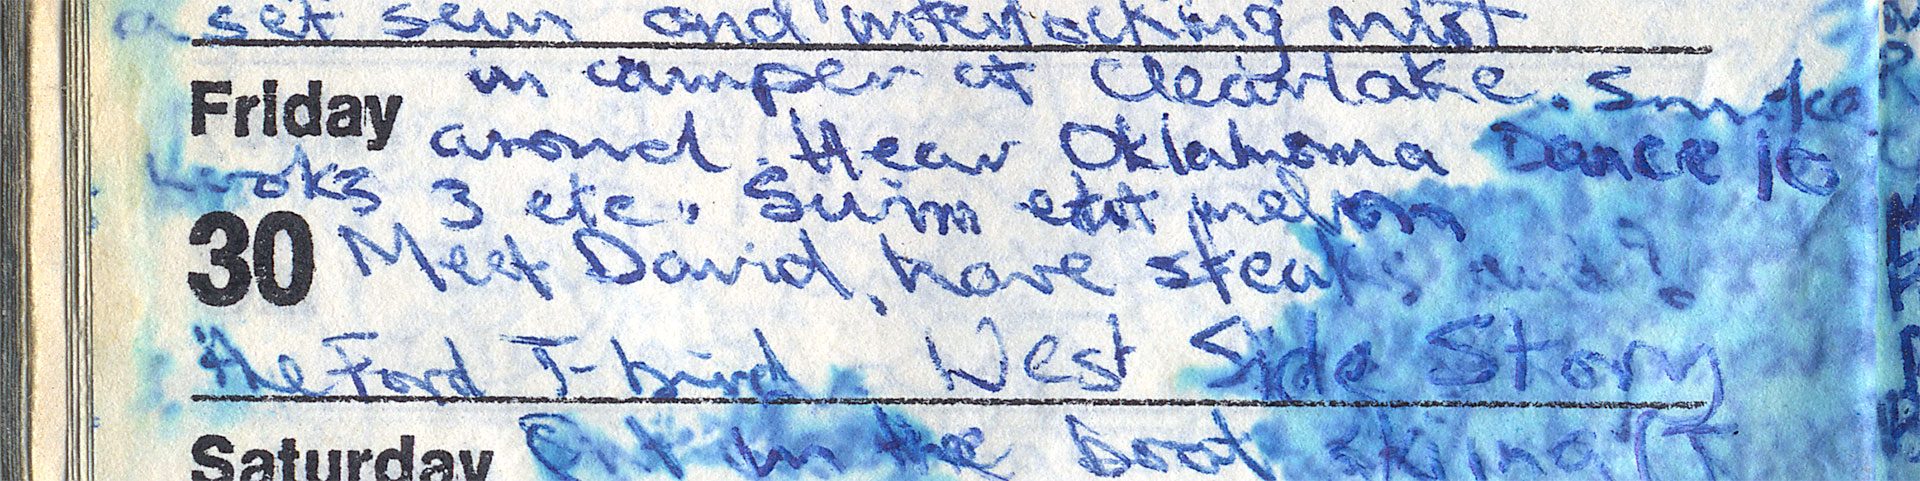 a set sein and interlocking
in camper at Clearlake. Smoke
Friday around. Hear Oklahoma Dance 16
Looks 3 etc. Swim etot melon
30 Meet David, have steaks and
the Ford T-bird West Side Story
Saturday Out in the boat skiing